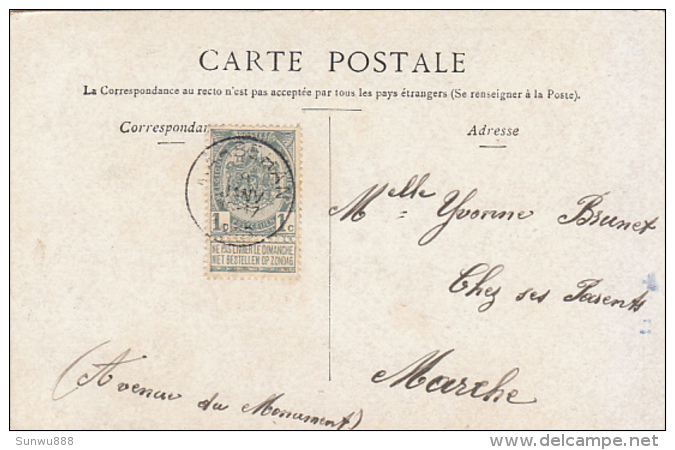 CARTE POSTALE
La Correspondance au recto n'est pas acceptée par tous les pays étrangers (Se renseigner à la Poste).
Correspondan
Adresse
1 C
1 C
NE PAS LIVRER LE DIMANCHE
NIET BESTELLEN OP ZONDAG
Melle Yvonne Brunet
Chez ses Parents
Marche
(Avenue du Monument)
Sunwu888
delcampe.net